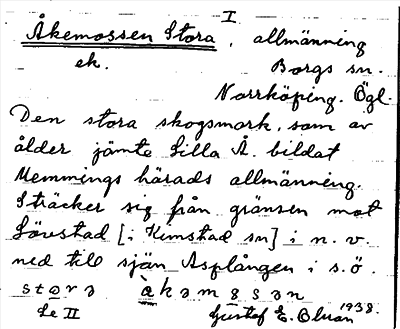 I
Åkemossen Stora, allmänning
ek. Borgs sn.
Norrköping. Ögl.
Den stora skogsmark, som av
ålder jämte Lilla Å. bildat
Memmings härads allmänning.
Sträcker sig från gränsen mot
Lövstad [i Kimstad sn] i n. v.
ned till sjön Asplången i s.ö.
storə åkəmɷsən
Le II Gustaf E. Olsson 1938.